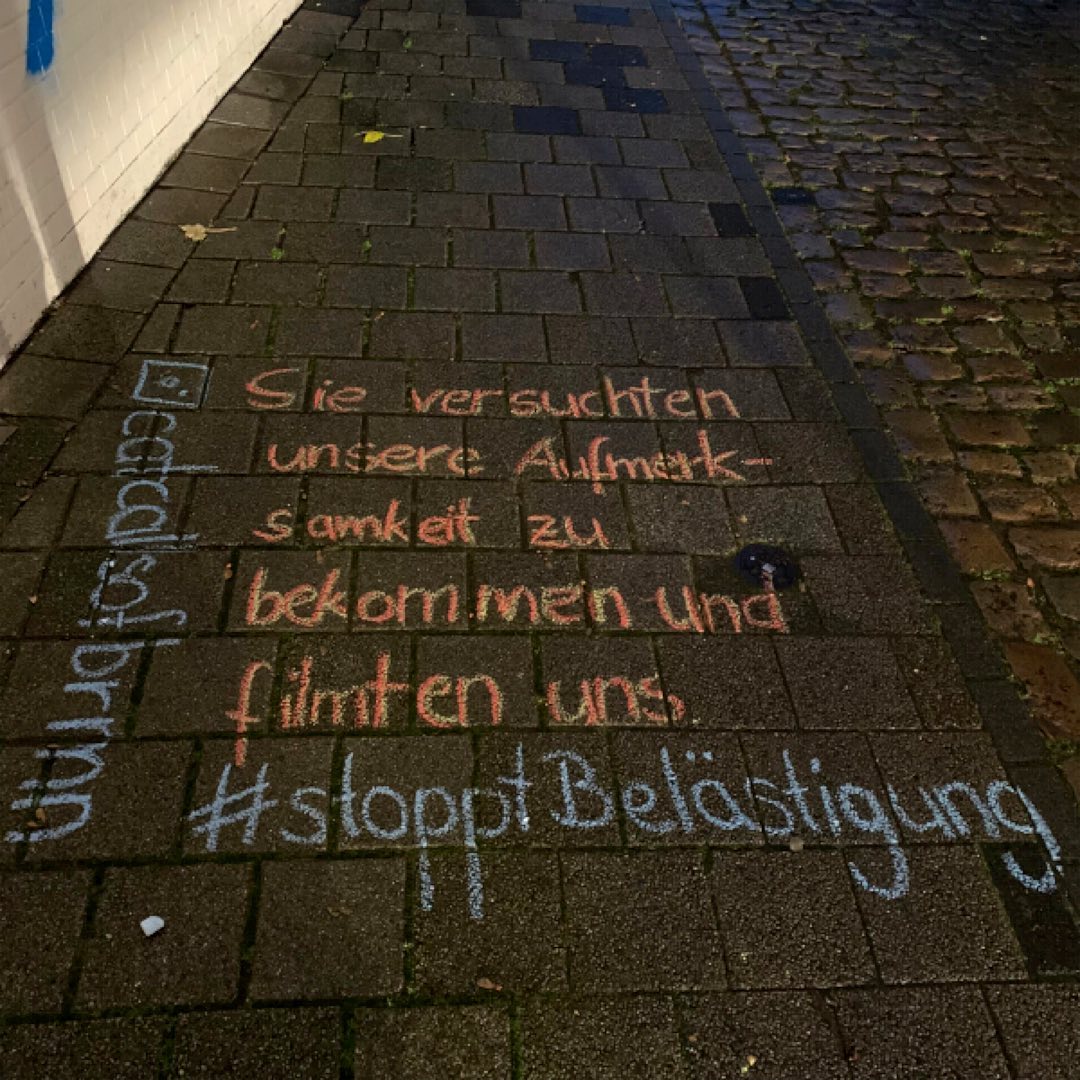 Sie versuchten
unsere Aufmerk-
samkeit zu
bekommen und
filmten uns
#stopptBelästigung
catcallsofbrmn